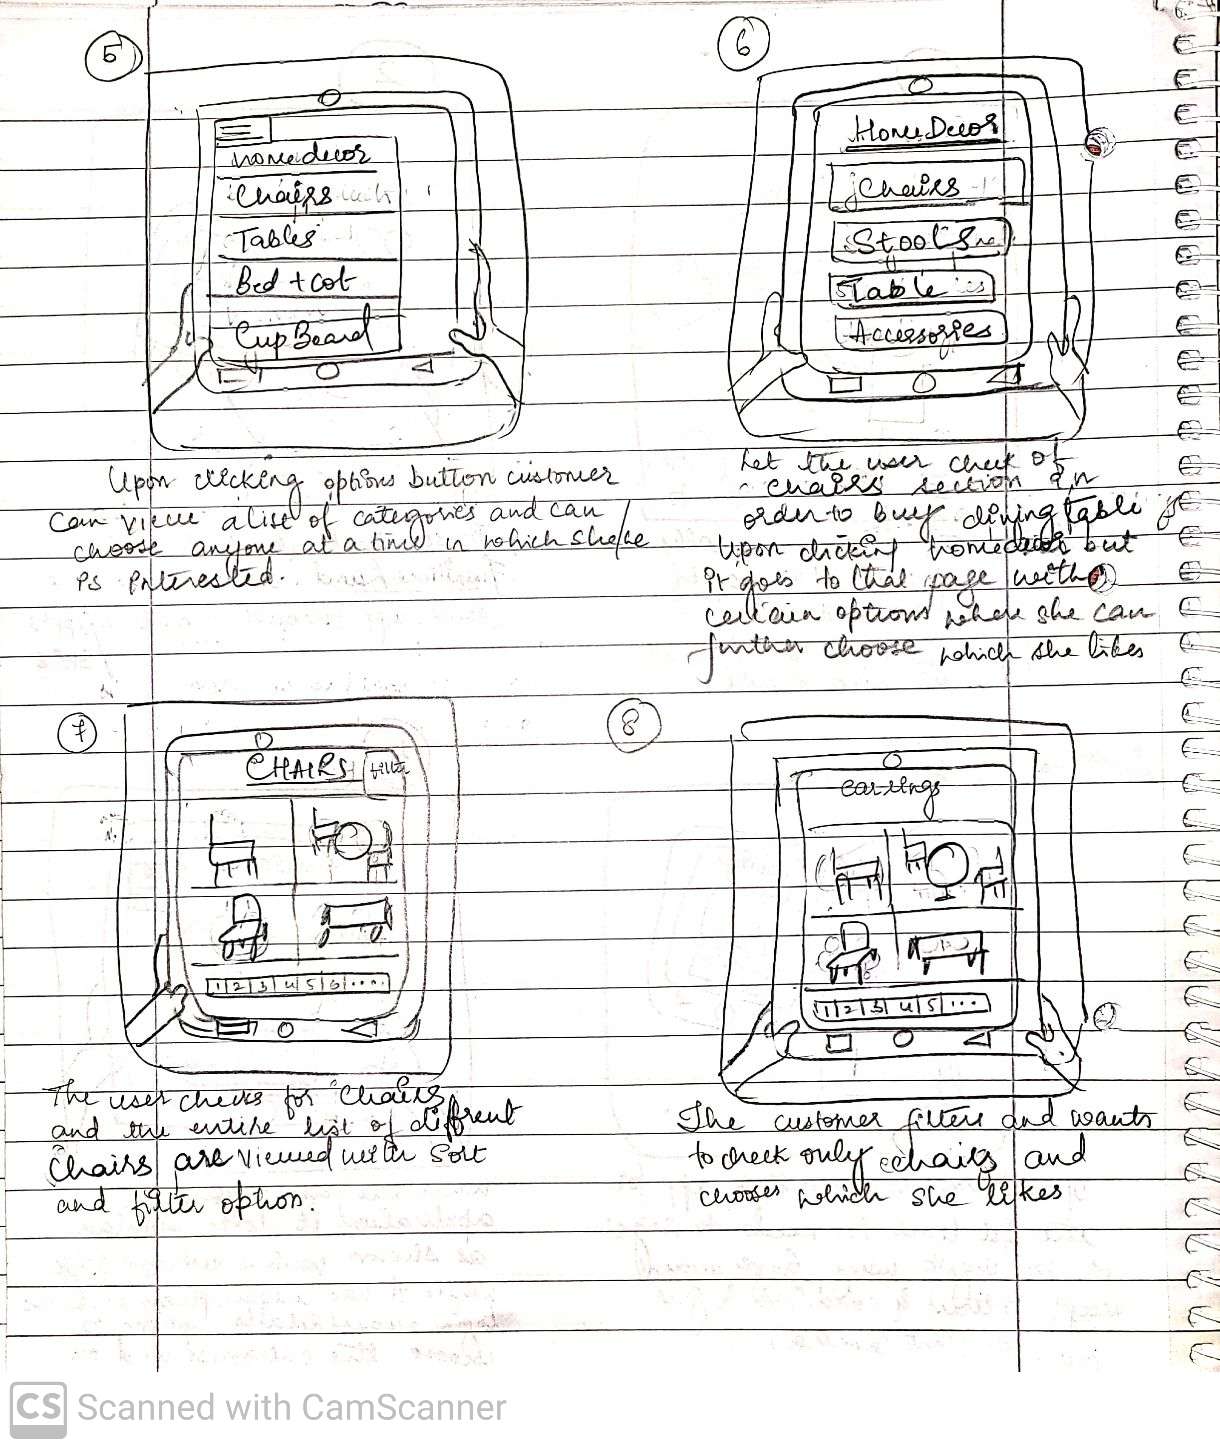 5
homedecor
Chairs
Tables
Bed + cot
CupBoard
Upon clicking options button customer
can view a list of categories and can
choose anyone at a time in which she/he
is interested.
6
HomeDecor
Chairs
Stools
Table
Accessories
Let the user check of
chairs section in
order to buy dining table
Upon clicking homedecor but
it goes to that page with
certain options where she can
further choose which she likes
7
CHAIRS filter
1 2 3 4 5 6 ....
The user checks for Chairs
and the entire list of different
Chairs are viewed with Sort
and filter option.
8
earrings
1 2 3 4 5 ...
The customer filters and wants
to check only chairs and
chooses which she likes
CS Scanned with CamScanner